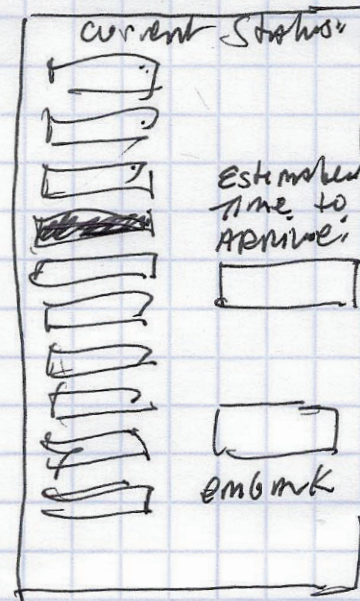 Current Status:
Estimated
Time to
ARRIVE:
embark